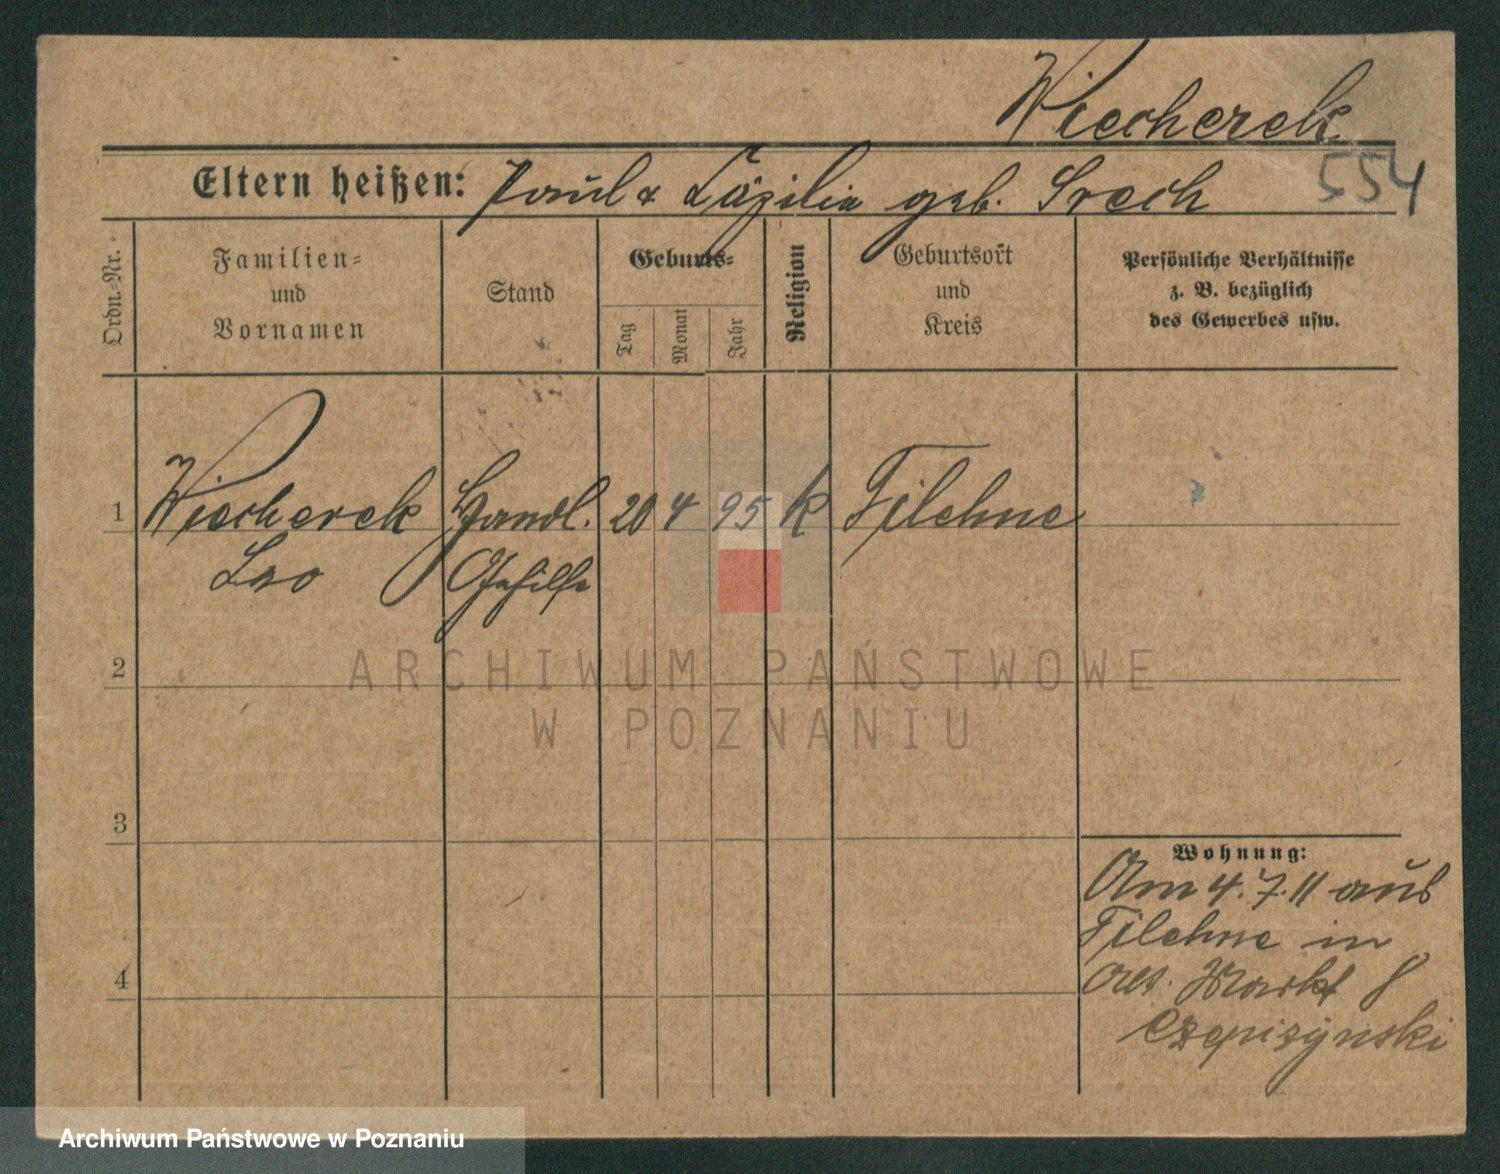 Wiecherek
554
Eltern heißen: Paul & Cäzilie geb. Srech
Ordn.-Nr.
Familien-
und
Vornamen
Stand
Geburts-
Tag
Monat
Jahr
Religion
Geburtsort
und
Kreis
Persönliche Verhältnisse
z. B. bezüglich
des Gewerbes usw.
1 Wiecherek Handl. 20 4 95 k Filehne
Leo Gehilfe
2
3
4
Wohnung:
Am 4.7.11 aus
Filehne in
Alt. Markt 8
ARCHIWUM PAŃSTWOWE
W POZNANIU
Archiwum Państwowe w Poznaniu